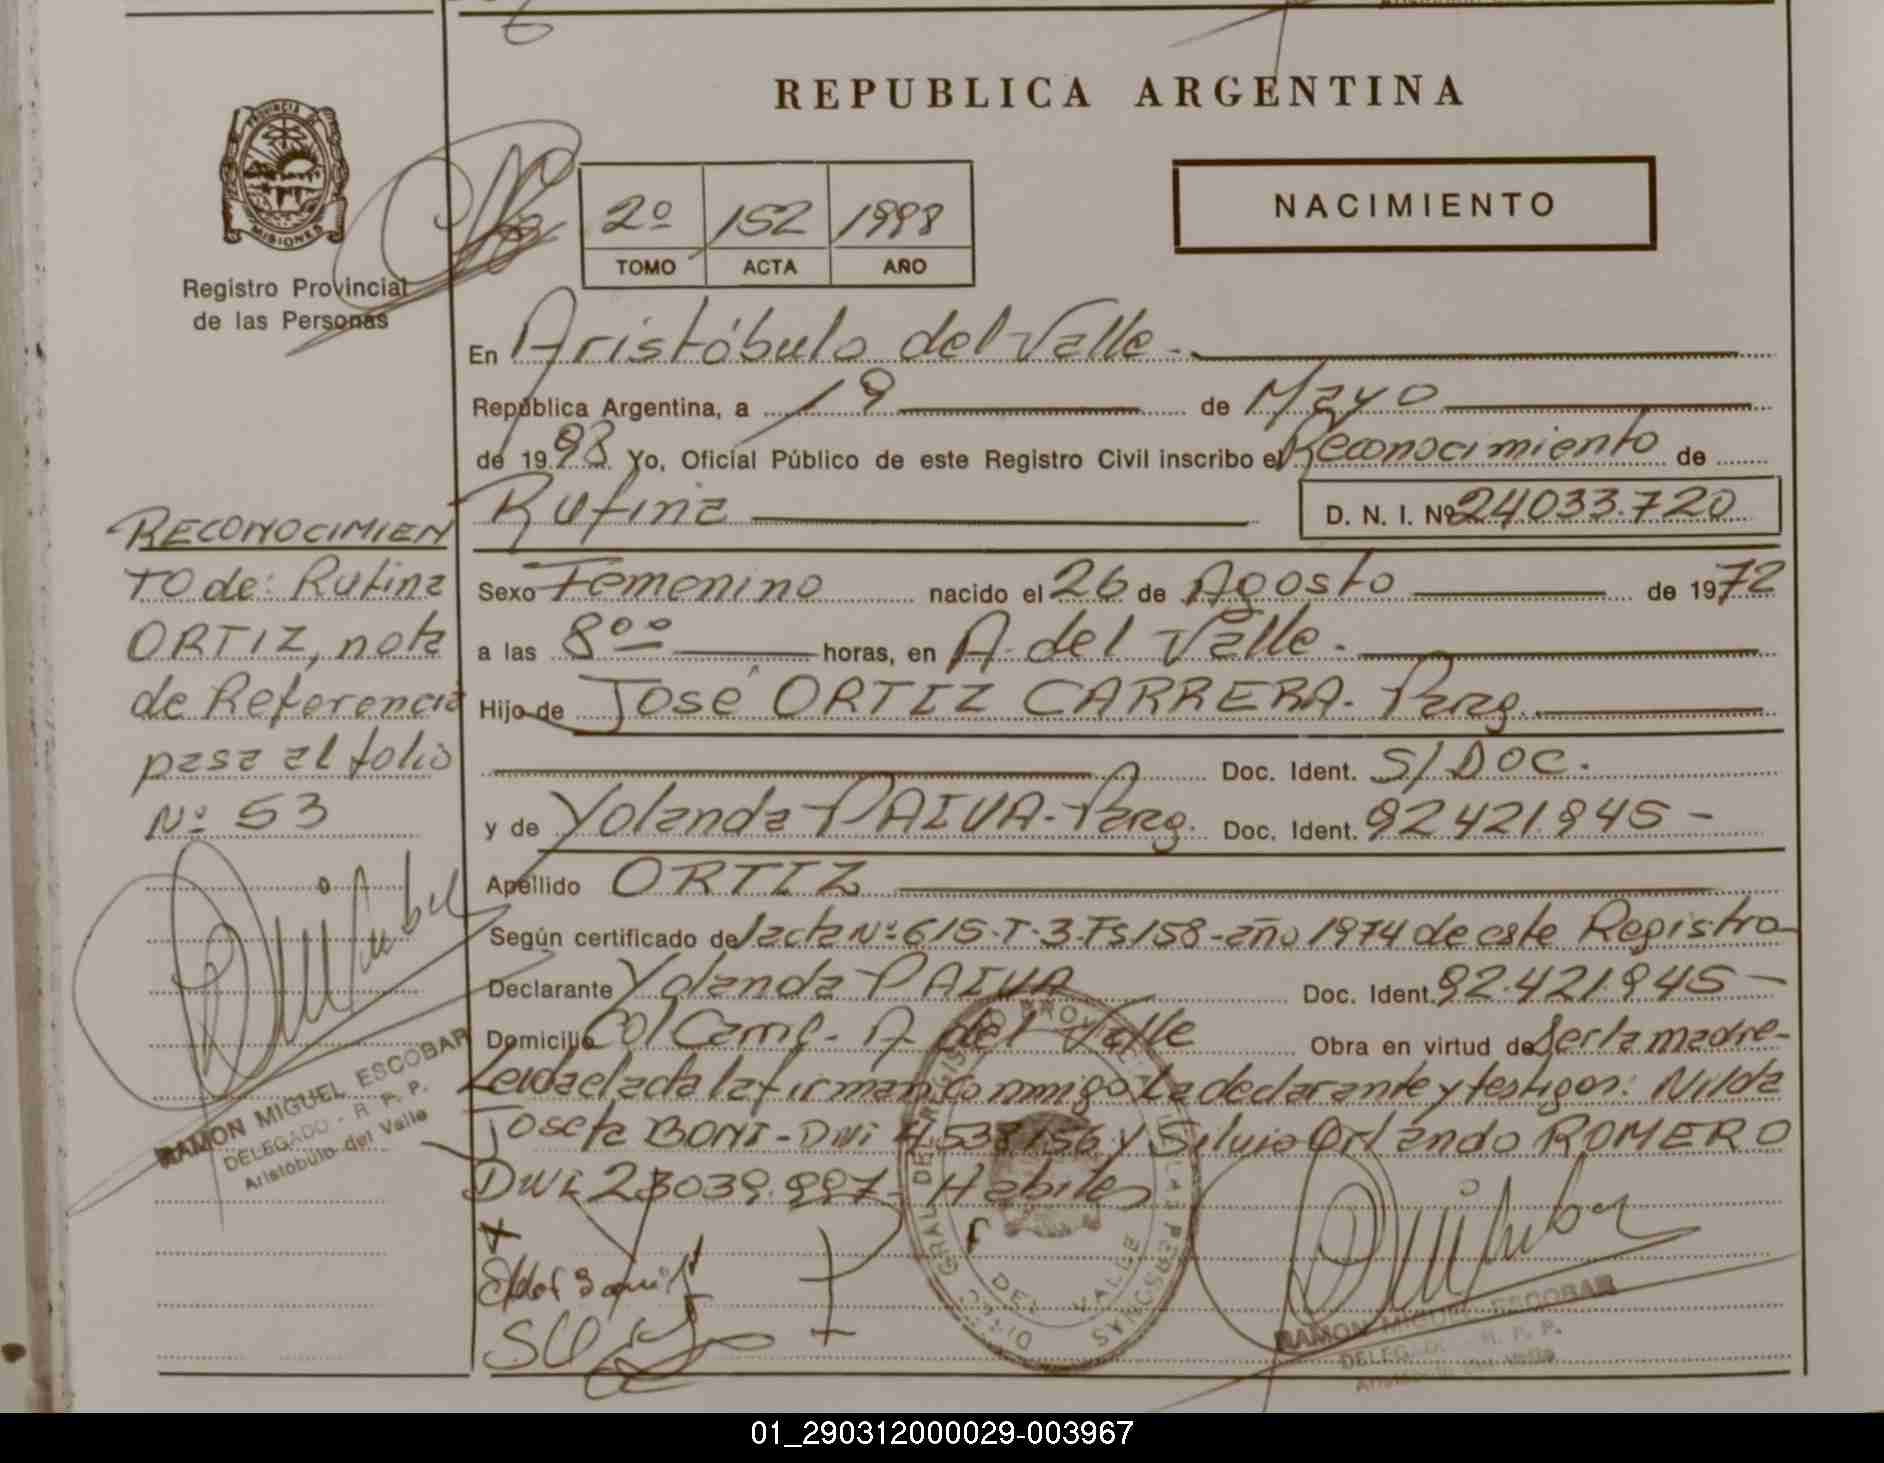 REPUBLICA ARGENTINA
PROVINCIA DE
MISIONES
Registro Provincial
de las Personas
2º 152 1998
TOMO ACTA AÑO
NACIMIENTO
En Aristóbulo del Valle.-
República Argentina, a 19 de Mayo
de 1998 Yo, Oficial Público de este Registro Civil inscribo el Reconocimiento de
Rufina D. N. I. Nº 24033.720
Sexo Femenino nacido el 26 de Agosto de 1972
a las 8ºº horas, en A. del Valle.-
Hijo de José ORTIZ CARRERA- Parag.
Doc. Ident. S/DOC.
y de Yolanda PAIVA-Parg. Doc. Ident. 92421.945-
Apellido ORTIZ
Según certificado de/acta Nº 615-T-3-Fs158-año 1974 de este Registro-
Declarante Yolanda PAIVA Doc. Ident. 92.421.945-
Domicilio Col Camp. A. del Valle Obra en virtud de Ser la madre-
Leida el acta la firman conmigo la declarante y testigos: Nilda
Josefa BONI-DNI 4.538156 y Silvio Orlando ROMERO
DNI 23039.997- Habiles
RAMON MIGUEL ESCOBAR
DELEGADO - R. P. P.
Aristóbulo del Valle
RECONOCIMIEN
TO de: Rufina
ORTIZ, nota
de Referencia
pasa al folio
Nº 53
RAMON MIGUEL ESCOBAR
DELEGADO - R. P. P.
Aristóbulo del Valle
01_290312000029-003967